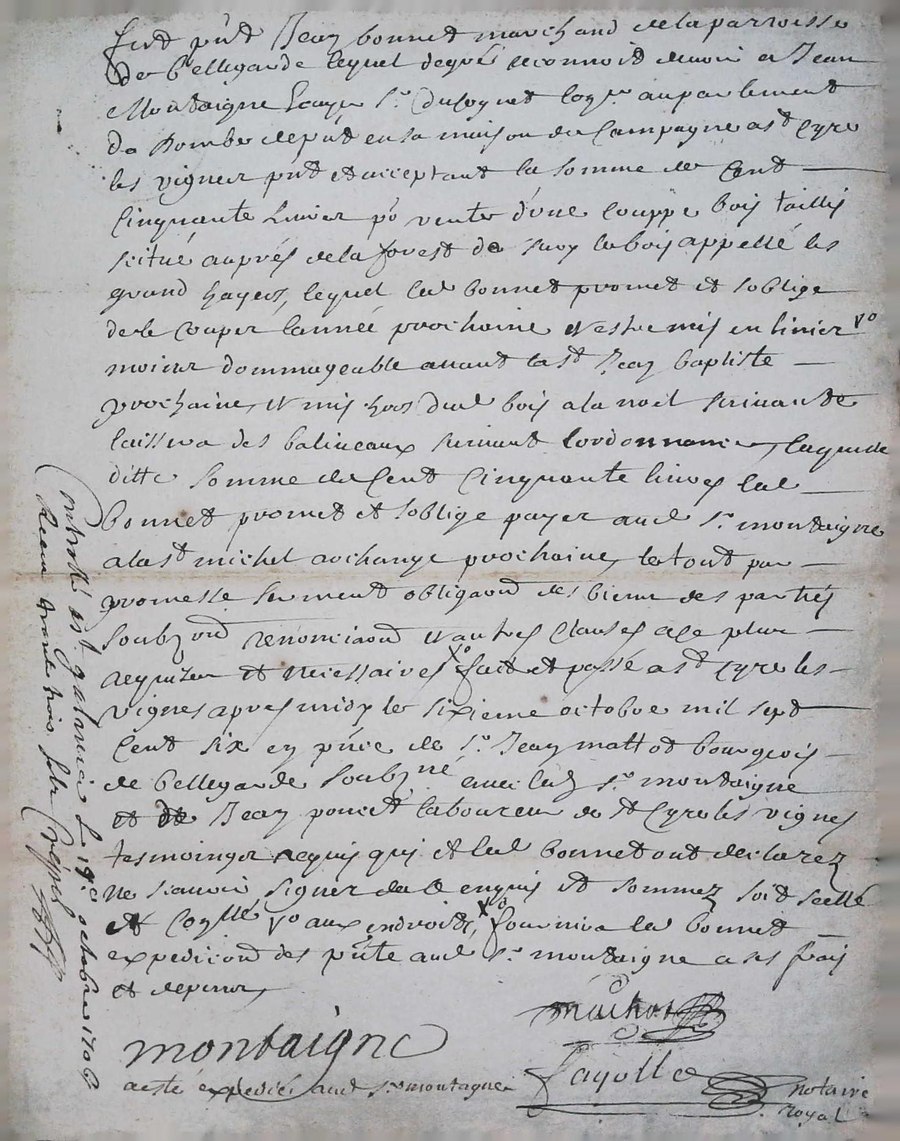 fut pnt Jean bonnet marchand de la parroisse
de bellegarde lequel de gré reconnoit devoir a Jean
Montaigne Ecuyer Sr. du pognet coner. au parlement
de Dombe depnt en sa maison de Campagne a st Cyre
les vignes pnt et acceptant la somme de Cent
Cinquante Livres po vente d'une Couppe bois taillis
scitué auprés de la forest de bois appellé les
grand hayes, lequel led bonnet promet et soblige
de le couper lannée prochaine et estre mis en lieu vo
moins dommageable avant la st Jean baptiste
prochaine, et mis hors dud bois a la noel suivante
laissera des balineaux suivant lordonnance, laquelle
ditte somme de Cent Cinquante livres led
bonnet promet et soblige payer aud Sr. montaigne
a la st michel archange prochaine, le tout par
promesse serment obligaond des biens des parties
soubzond renonciaond et autres clauses a ce plus
requizes et necessaires xo fait et passé a st Cyre les
vignes apres midy le sixieme octobre mil sept
Cent six en pnce de Sr. Jean mattot bourgeois
de bellegarde soubzné avec led Sr. montaigne
et de Jean poncet laboureur de st Cyre les vignes
tesmoings requis qui et led bonnet ont declarez
ne scavoir signer de ce enquis et sommez soit scellé
et Collé vo aux endroits, xo fournira led bonnet
expedicion des pnte aud Sr. montaigne a ses frais
et depens,
montaigne
mathot
a esté expedié aud Sr montagne
fayolle notaire
royal
Controllé a st galmier le 19e octobre 1706
Receu trente trois sols